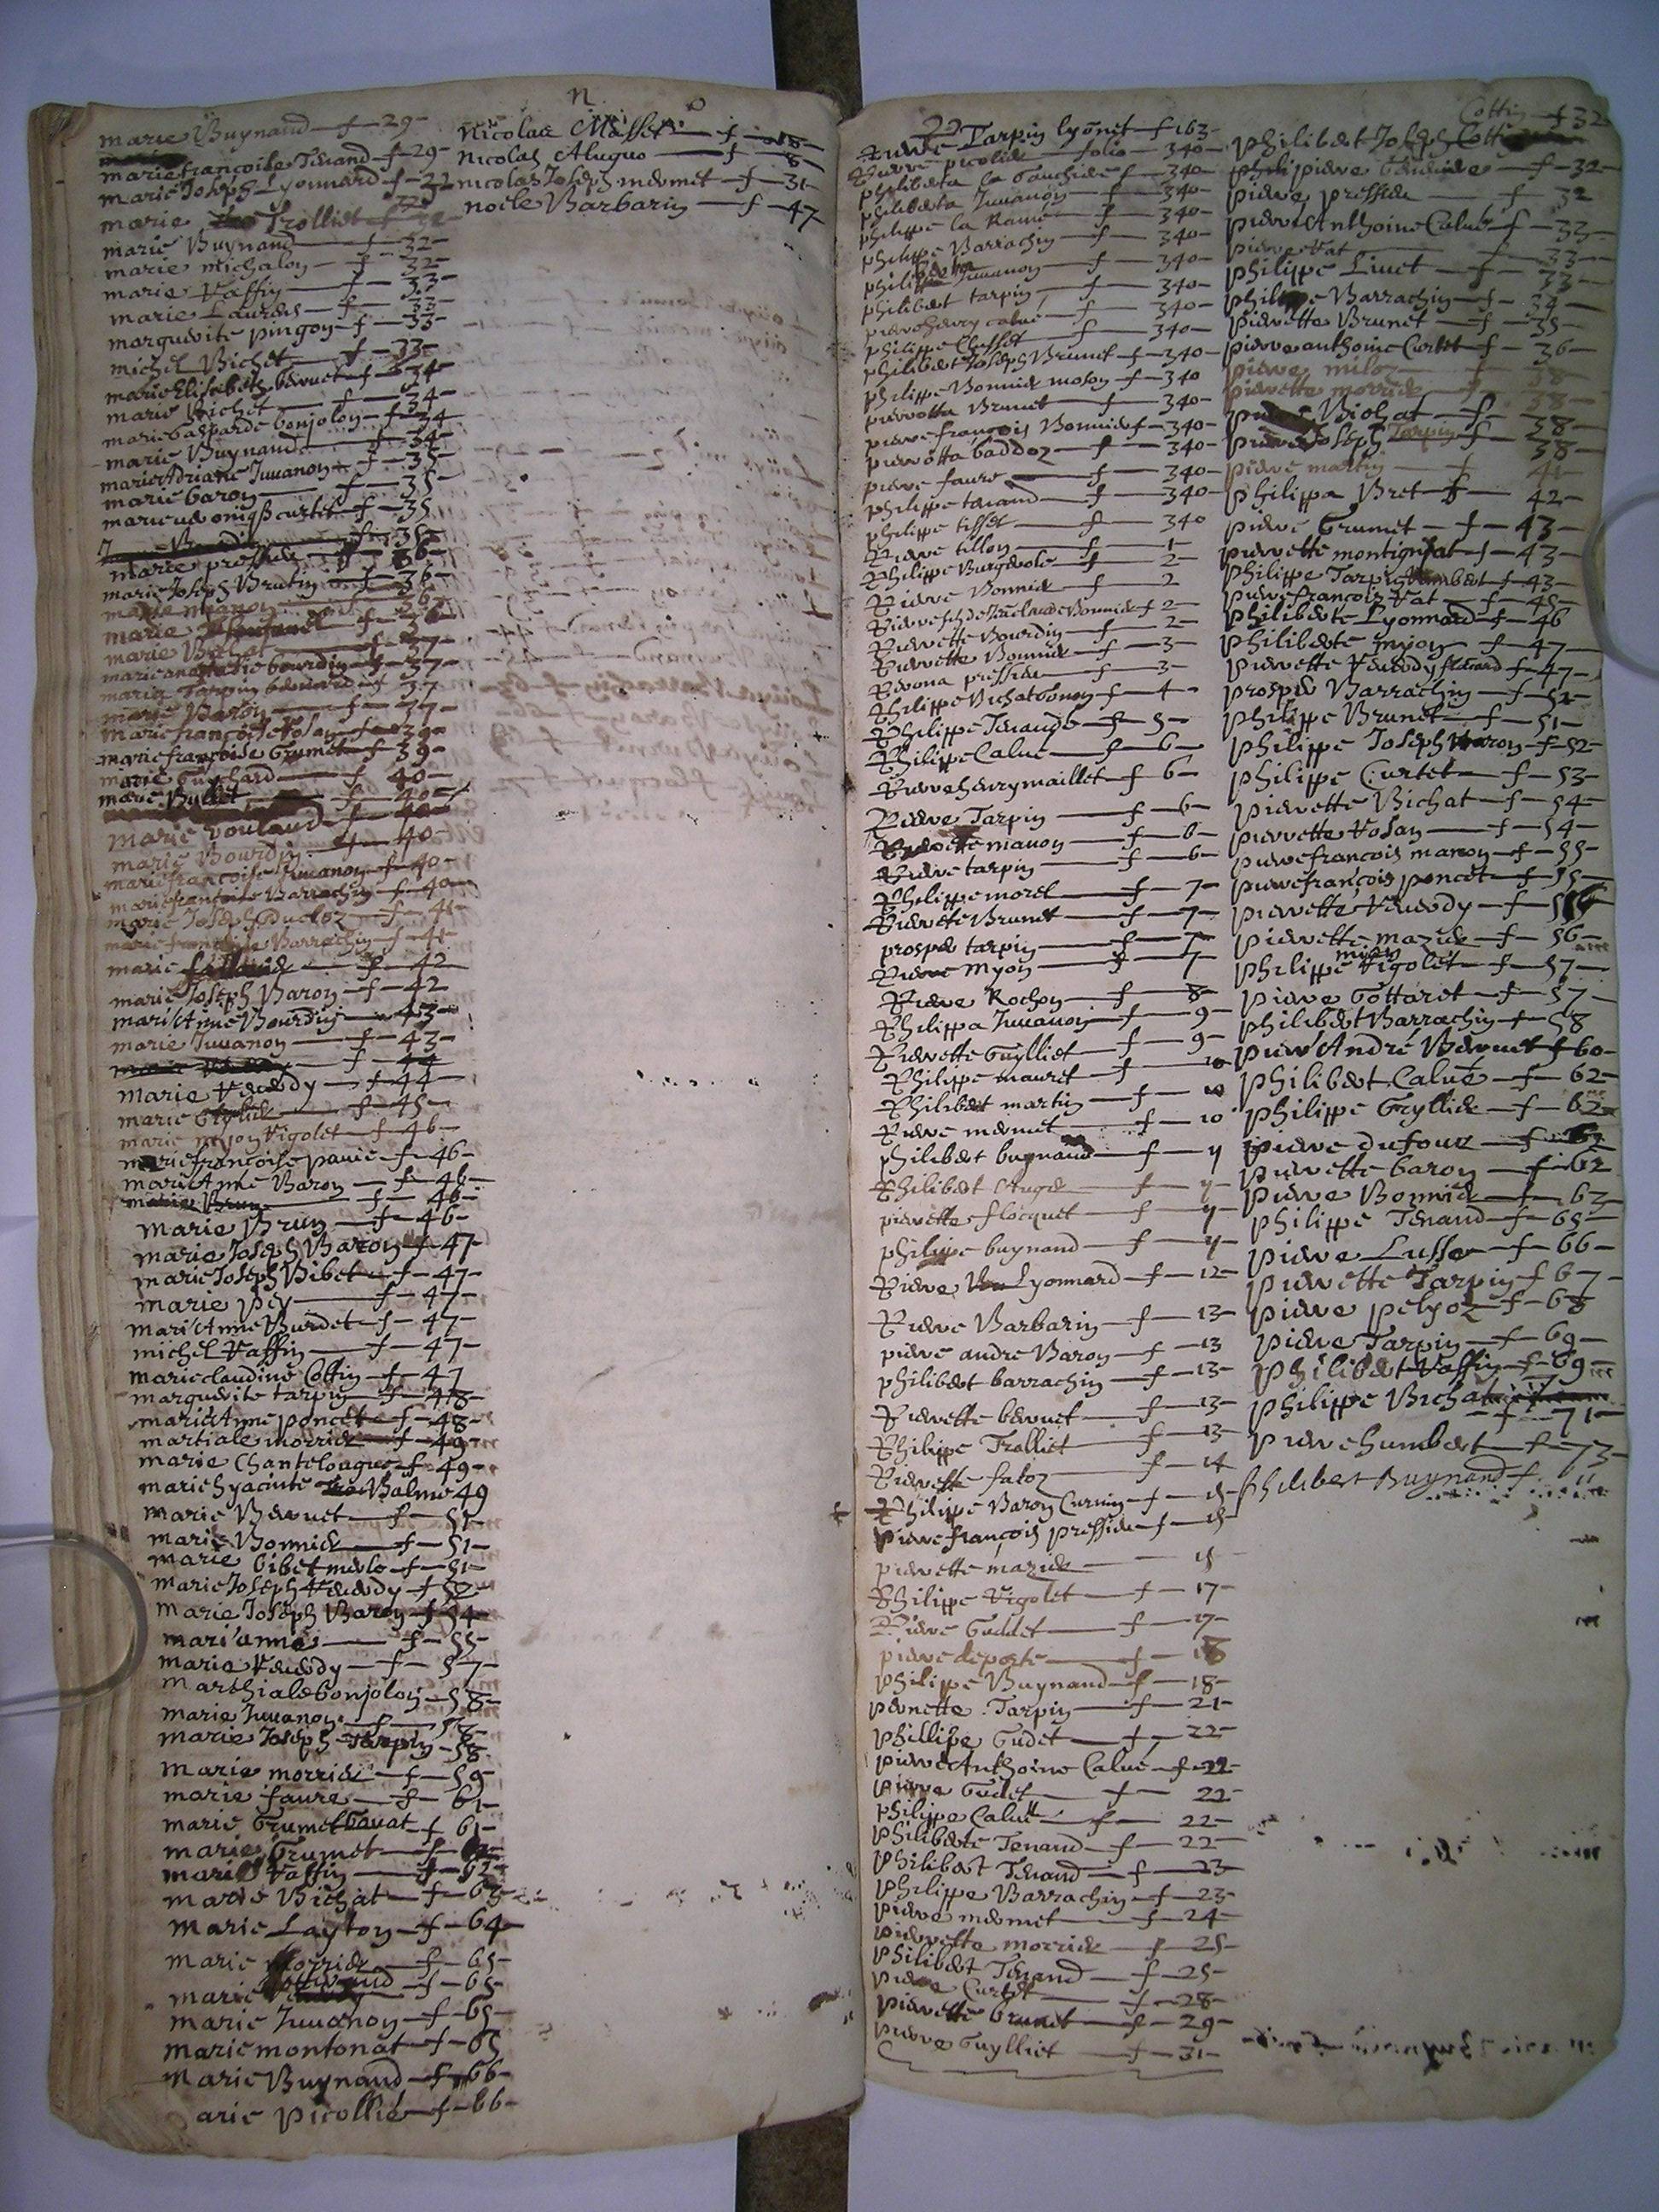 marie Buynand f 29
marie françoise Tenand f 29
marie Joseph Lyonnard f 22
marie Trolliet
marie Buynand f 32
marie michalon f 32
marie Vaffin f 33
marie Laurens f 33
marguerite pingon f 33
michel Bichet f 33
marie Elisabeth bernet f 34
marie Bichet f 34
marie gasparde bonjolon f 34
marie Buynand f 34
marie Adriane Juuanon f 35
marie baron f 35
marie curtet f 35
f 35
marie pressieu f 36
marie Joseph Brutin f 36
marie f 36
marie
marie Bichat f 37
marie bourdin f 37
marie Tarpin f 37
marie Baron f 37
marie françoise f 39
marie françoise Grumet f 39
marie Guychard f 40
marie Bullet f 40
marie voulaud f 40
marie Bourdin f 40
marie françoise Juuanon f 40
marie françoise Barrachin f 40
marie Joseph Ducloz f 41
marie françoise Barrachin f 41
marie f 42
marie Joseph Baron f 42
mari Anne Bourdin 43
marie Juuanon f 43
f 44
marie f 44
marie f 45
marie myon Vigolet f 46
marie françoise panie f 46
mari Anne Baron f 46
marie Brun f 46
marie Brun f 46
marie Joseph Baron f 47
marie Joseph Bibet f 47
marie pey f 47
mari Anne Burdet f 47
michel Vaffin f 47
marie claudine Cottin f 47
marguerite tarpin f 48
mari Anne poncet f 48
martiale morrier f 49
marie Chanteloague f 49
marie hyacinte Balme 49
marie Bernet f 51
marie Bonnier f 51
marie bibet merle f 51
marie Joseph f 52
marie Joseph Baron f 54
mari anne f 55
marie f 57
marthiale bonjolon 58
marie Juuanon f 58
marie Joseph Tarpin 58
marie morrier f 59
marie faure f 61
marie Grumet Gauat f 61
marie Grumet f 62
marie Vaffin f 62
marie Bichat f 63
marie Layton f 64
marie morrier f 65
marie f 65
marie Juuanon f 65
marie montonat f 65
marie Buynand f 66
arie picollie f 66
n
Nicolas Masset f 8
nicolas f 8
nicolas Joseph mermet f 31
noele Barbarin f 47
Pierre Tarpin lyonet f 163
pierre picolier folio 340
philiberta la Gauchiere f 340
philiberta Juuanon f 340
philippe la Rame f 340
philippe Barrachin f 340
philippe Juuanon f 340
philibert tarpin f 340
pierre henry calue f 340
philippe Chosset f 340
philibert Joseph Brunet f 340
philippe Bonnier moson f 340
pierrotta Brunet f 340
pierre françois Bonnier f 340
pierrotta baddoz f 340
pierre faure f 340
philippe tenand f 340
philippe tisset f 340
Pierre tillon f 1
Philippe Burgerole f 2
Pierre Bonnier f 2
Pierre Bonnier f 2
Pierrette Bourdin f 2
Pierrette Bonnier f 3
Pierrona pressieu f 3
Philippe Bichat Gonon f 4
Philippe Tenande f 5
Philippe Calue f 6
Pierre henry maillet f 6
Pierre Tarpin f 6
Pierrette manon f 6
Pierre tarpin f 6
Philippe morel f 7
Pierrette Brunet f 7
prosper tarpin f 7
Pierre Myon f 7
Pierre Rochon f 8
Philippa Juuanon f 9
Pierrette Guylliet f 9
Philippe mauret f 10
Philibert martin f 10
Pierre mermet f 10
philibert buynand f 11
Philibert Auger f 11
pierrette flocquet f 11
philippe buynand f 11
Pierre Lyonnard f 12
Pierre Barbarin f 13
pierre andre Baron f 13
philibert barrachin f 13
Pierrette bernet f 13
Philippe Trolliet f 13
Pierrette faboz f 14
Philippe Baron Curnin f 15
pierre françois pressieu f 15
pierrette mazier 15
Philippe Vigolet f 17
Pierre Guddet f 17
pierre deporte f 18
philippe Buynand f 18
pernette Tarpin f 21
phillipe Gudet f 22
pierre Anthoine Calue f 22
pierre Gudet f 22
philippe Calue f 22
philiberte Tenand f 22
philibert Tenand f 23
philippe Barrachin f 23
pierre mermet f 24
pierrette morrier f 25
philibert Tenand f 25
pierre Curtet f 28
pierrette brunet f 29
pierre Guylliet f 31
Cottin f 32
philibert Joseph Cottin
philipierre f 32
pierre pressieu f 32
pierre Anthoine Calue f 33
pierre Vat f 33
philippe Liuet f 33
philippe Barrachin f 34
pierrette Brunet f 35
pierre anthoine Curtet f 36
pierre miloz f 38
pierrette morrier f 38
pierre Biohat f 38
pierre Joseph Tarpin f 38
pierre martin f 41
philippa Bret f 42
pierre Grumet f 43
pierrette montignat f 43
philippe Tarpin humbert f 43
pierre françois Vat f 45
philiberte Lyonnard f 46
philiberte myon f 47
pierrette f 47
prosper Barrachin f 51
philippe Brunet f 51
philippe Joseph Baron f 52
philippe Curtet f 53
pierrette Bichat f 54
pierrette Vosan f 54
pierre francois maron f 55
pierre françois poncet f 55
pierrette f
pierrette mazier f 56
philippe myon Vigolet f 57
pierre Gottaret f 57
philibert Barrachin f 58
pierr André Bernet f 60
philibert Calue f 62
philippe Gryllier f 62
pierre dufour f 62
pierrette baron f 62
pierre Bonnier f 63
philippe Tenand f 65
pierre Lusse f 66
pierrette Tarpin f 67
pierre pelpoz f 68
pierre Tarpin f 69
philibert Vaffin f 69
philippe Bichat
f 71
pierre humbert f 73
philibert Buynand f 11